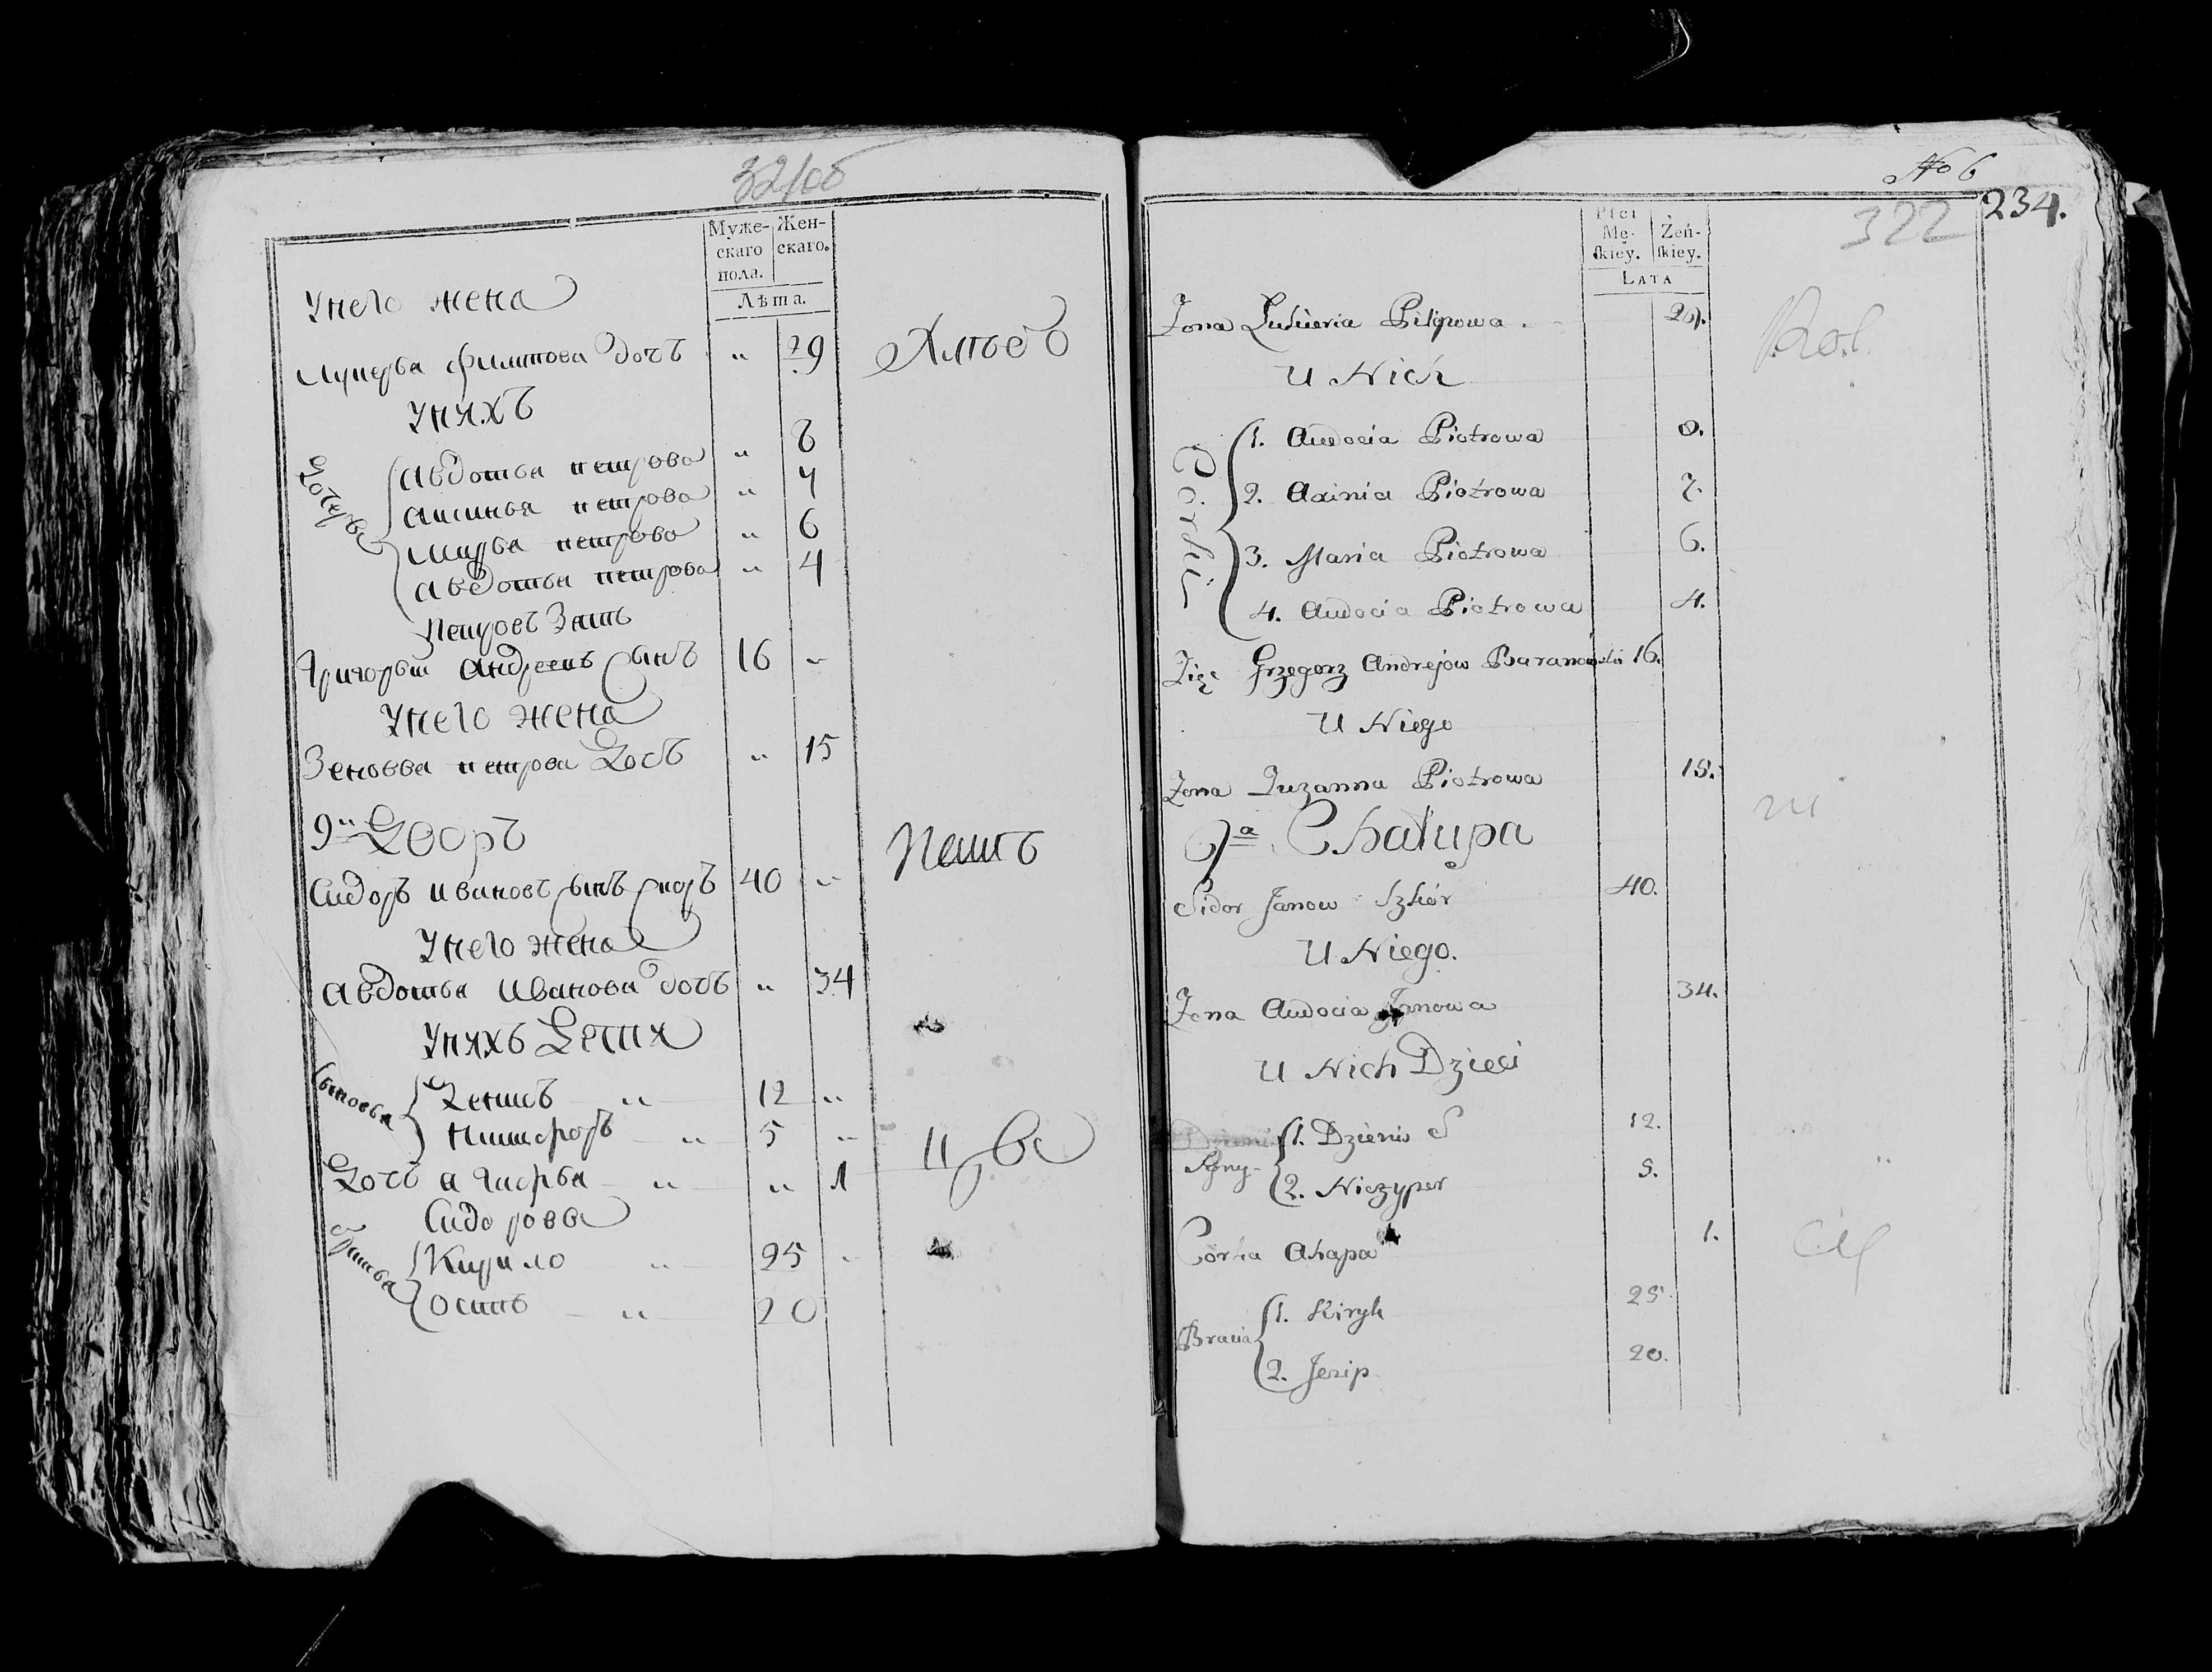 Муже-
скаго
пола.
Жен-
скаго.
Лѣта.
Унего жена
Лукерья филипова дочь " 29
Унихъ
Дочерья
Авдотья петрова " 8
Аксинья петрова " 7
Марья петрова " 6
Авдотья петрова " 4
Петровъ Зять
Григорьи Андреевъ сынъ 16 "
Унего жена
Зеновья петрова Дочь " 15
9й Дворъ
Сидоръ Ивановъ сынъ 40 "
Унего жена
Авдотья Иванова дочь " 34
Унихъ Дети
Сыновья
Денисъ " 12 "
Ничифоръ " 5 "
Дочь Агафья " " 1
Сидорова
Братья
Кирило " 25 "
Осипъ " 20
No 6
322
234.
Płci
Mę-
skiey.
Żeń-
skiey.
LATA
Zona Lukieria Pilipowa. 29.
U Nich
Córki
1. Audocia Piotrowa 8.
2. Axinia Piotrowa 7.
3. Maria Piotrowa 6.
4. Audocia Piotrowa 4.
Zięć Grzegorz Andrejow Baranowski 16.
U Niego
Zona Zuzanna Piotrowa 15.
9a Chałupa
Sidor Janow Szkór 40.
U Niego.
Zona Audocia Janowa 34.
U Nich Dzieci
Syny
1. Dzienis 12.
2. Niczyper 5.
Córka Ahapa 1.
Bracia
1. Kiryk 25.
2. Jezip 20.